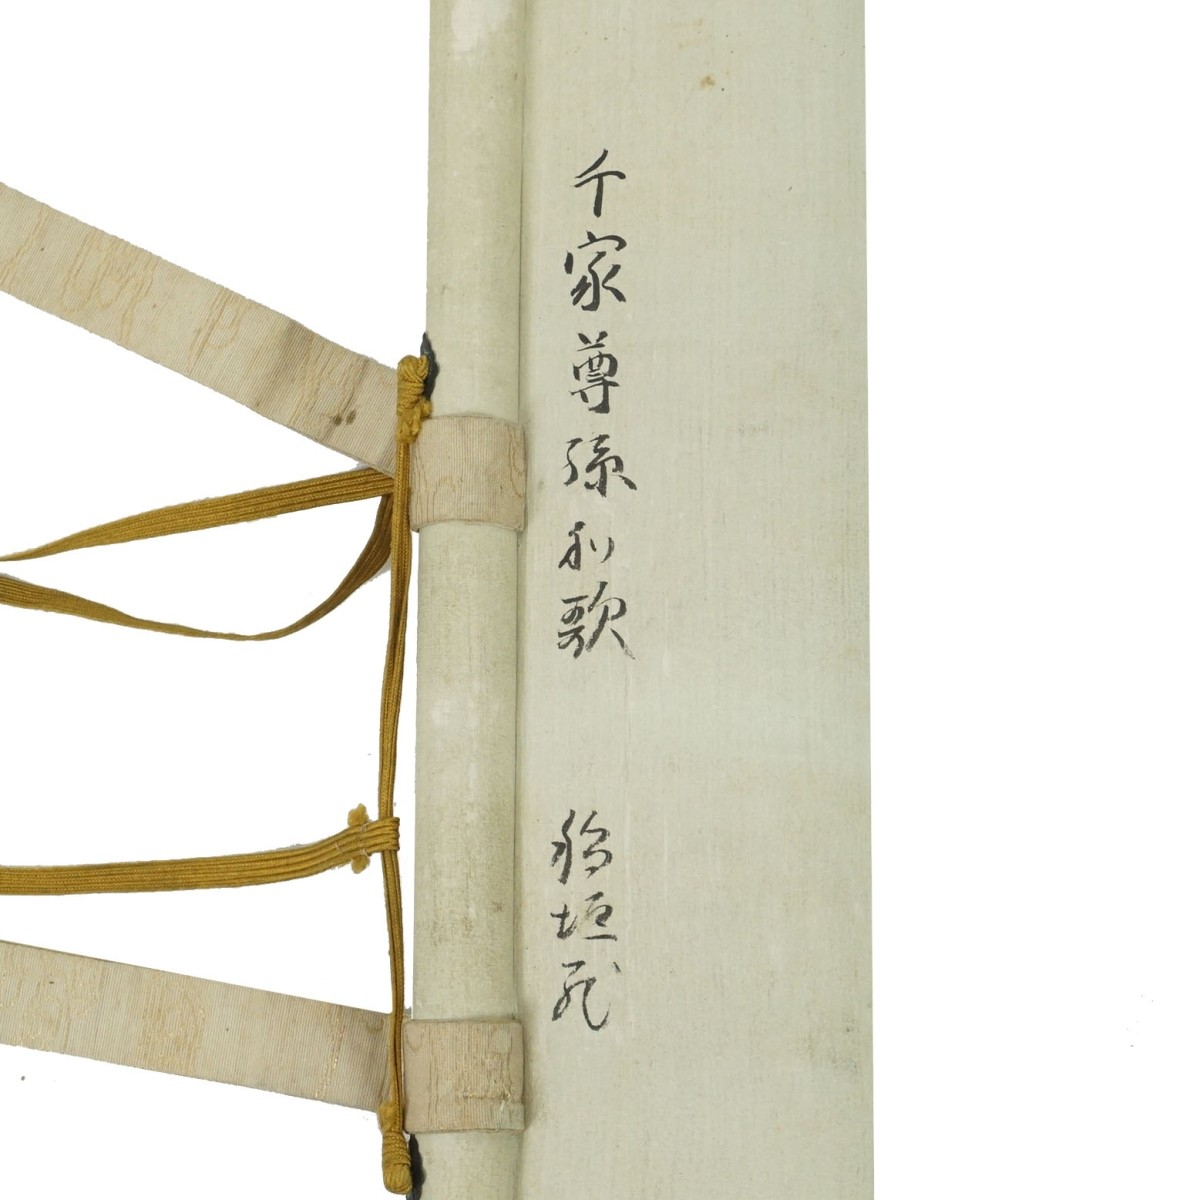 千家尊孫和歌　稲垣蔵